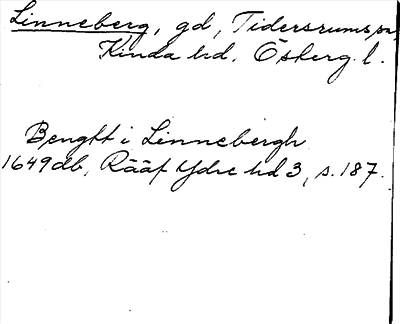 Linneberg, gd, Tidersrums sn,
Kinda hd. Österg. l.
Bengtt i Linnebergh
1649 db, Rääf Ydre hd 3, s. 187.